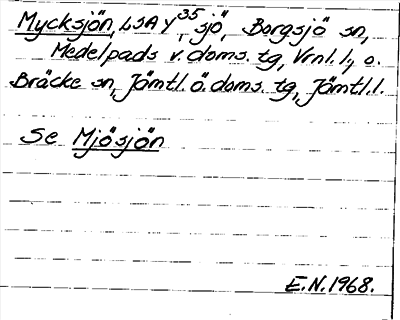 Mycksjön, LSA Y 35, sjö, Borgsjö sn,
Medelpads v. doms. tg, Vrnl. l., o.
Bräcke sn, Jämtl. ö. doms. tg, Jämtl. l.
Se Mjösjön
E.N. 1968.